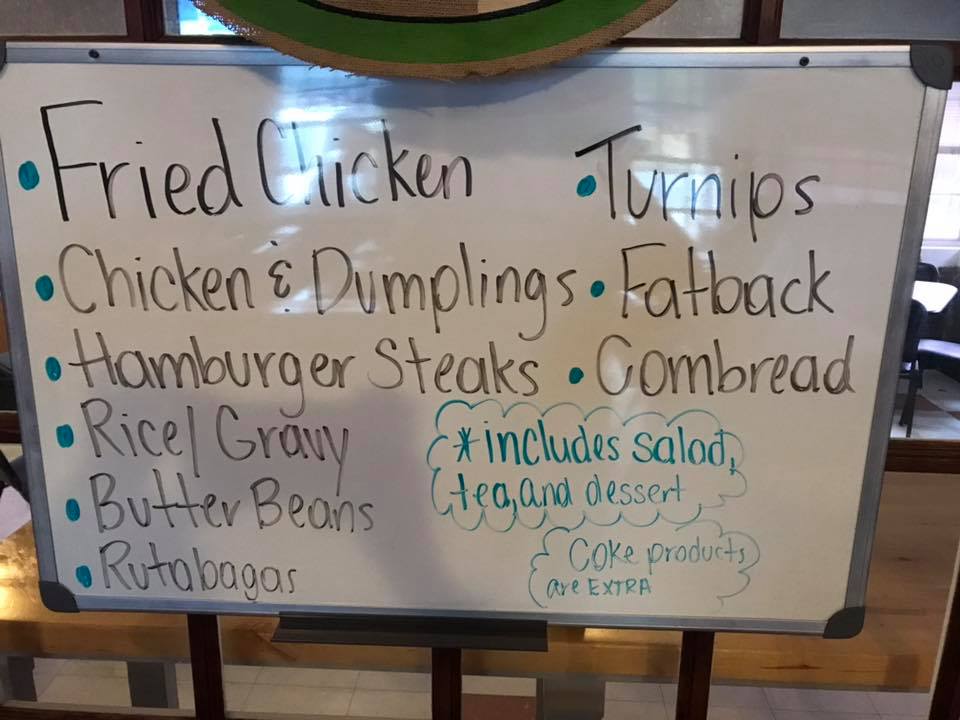 • Fried Chicken
• Chicken & Dumplings
• Hamburger Steaks
• Rice/Gravy
• Butter Beans
• Rutabagas
• Turnips
• Fatback
• Cornbread
*includes salad,
tea, and dessert
Coke products
are EXTRA